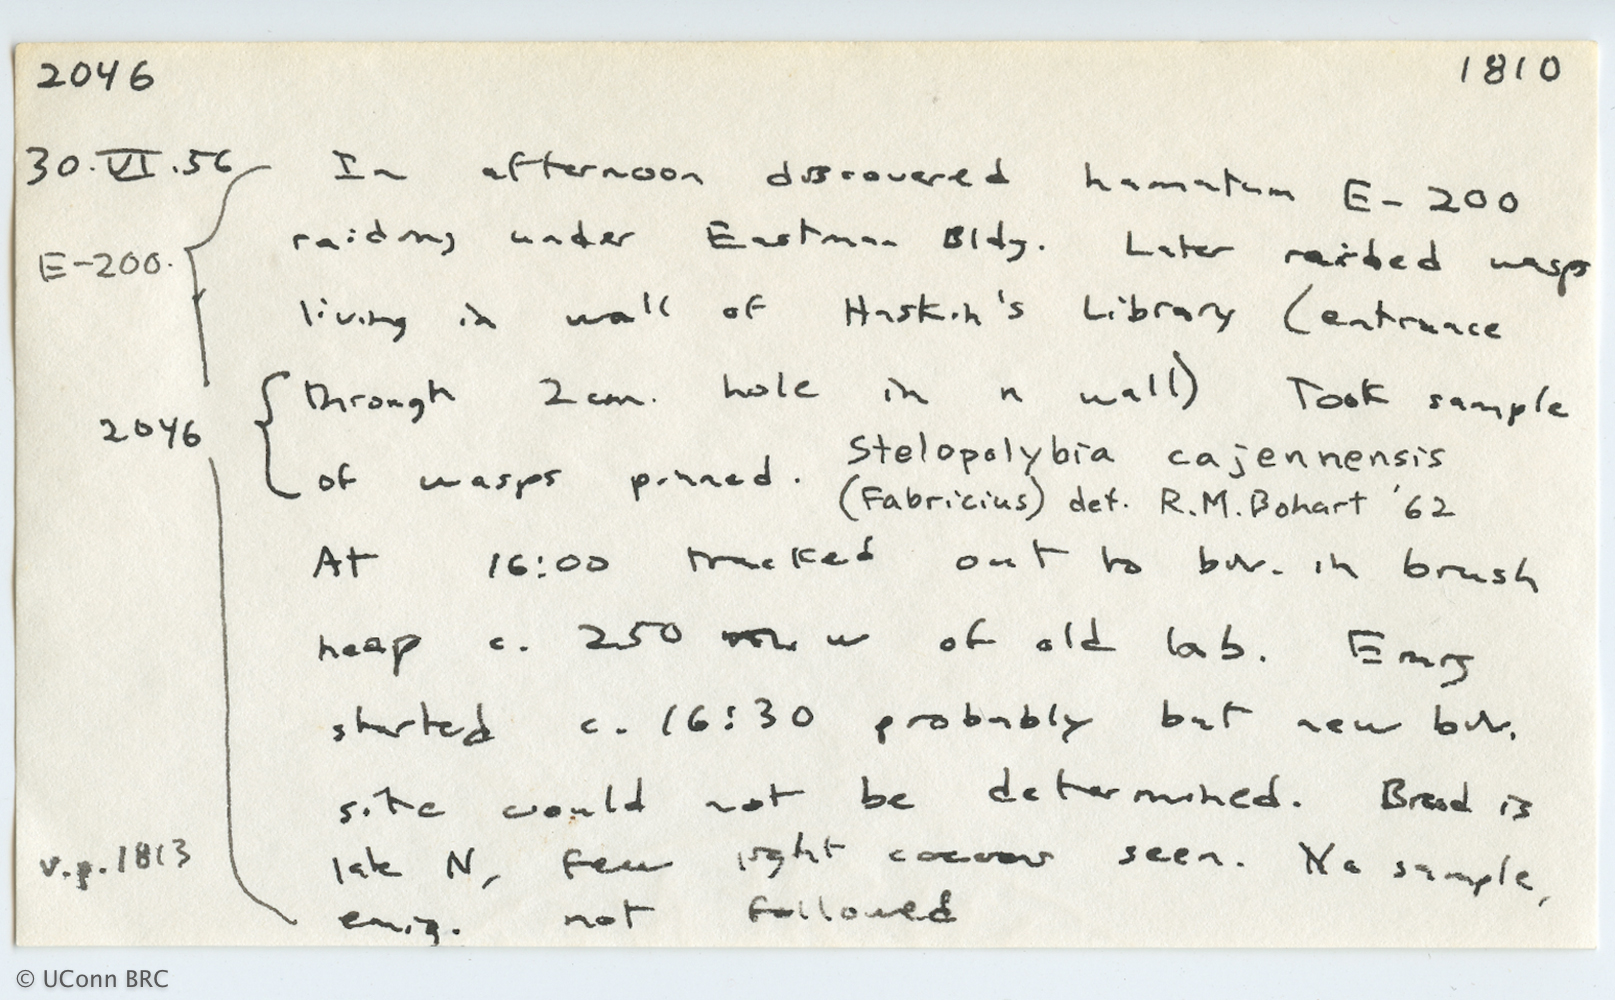 2046 1810
30.VI.56 In afternoon discovered hamatum E-200
E-200. raiding under Eastman Bldg. Later raided wasps
living in wall of Haskin's Library (entrance
through 2 cm. hole in n wall) Took sample
2046
of wasps pinned. Stelopolybia cajennensis
(Fabricius) det. R.M.Bohart '62
At 16:00 tracked out to biv. in brush
heap c. 250 w of old lab. Emig
started c. 16:30 probably but new biv.
site could not be determined. Brood is
v.p.1813 late N, few light cocoons seen. No sample,
emig. not followed
© UConn BRC